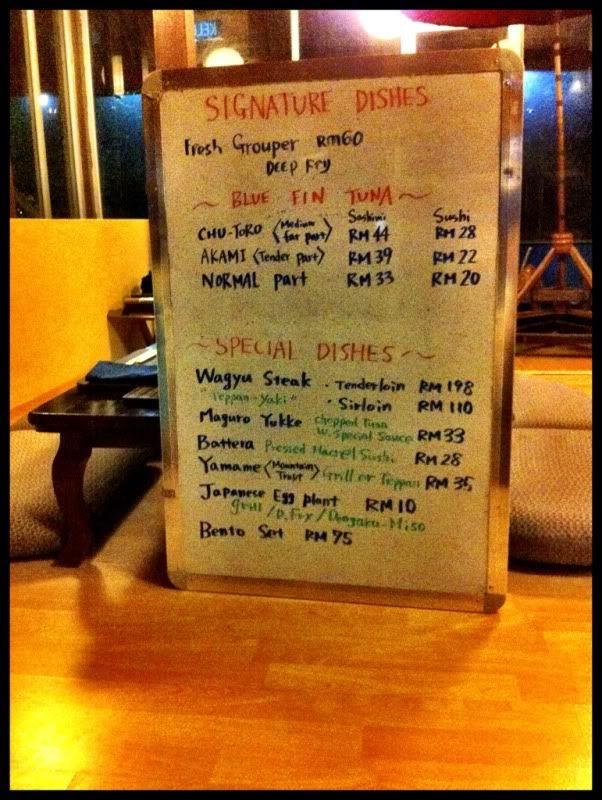 SIGNATURE DISHES
Fresh Grouper RM60
DEEP Fry
~ BLUE FIN TUNA ~
Sashimi Sushi
CHU-TORO <Medium fat part> RM 44 RM 28
AKAMI <Tender part> RM 39 RM 22
NORMAL part RM 33 RM 20
~ SPECIAL DISHES ~
Wagyu Steak · Tenderloin RM 198
"Teppan-yaki" · Sirloin RM 110
Maguro Yukke chopped Tuna W. Special Sauce RM 33
Battera Pressed Macrel Sushi RM 28
Yamame <Mountain Trout> Grill or Teppan RM 35
Japanese Egg plant RM 10
grill / D. Fry / Dengaku-Miso
Bento Set RM 75